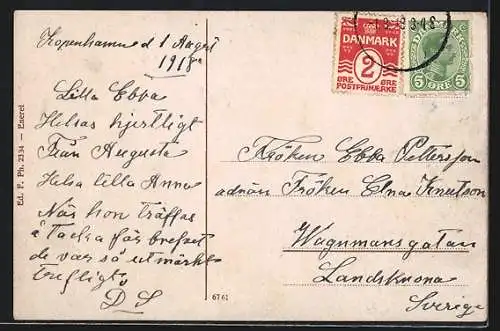 Kopenhamn d 1 Augusti
1918
Lilla Ebba
Helsas hjertligt
Från Augusta
Helsa lilla Anna
När hon träffas
å Tacka för brefvet
de var så utmärkt
trefligt
D S
Ed. F. Ph. 2334 — Eneret
6761
DANMARK
2
ØRE ØRE
POSTFRIMÆRKE
5 ØRE 5
Fröken Ebba Pettersson
adräs Fröken Elna Knutson
Wagnmansgatan
Landskrona
Sverige